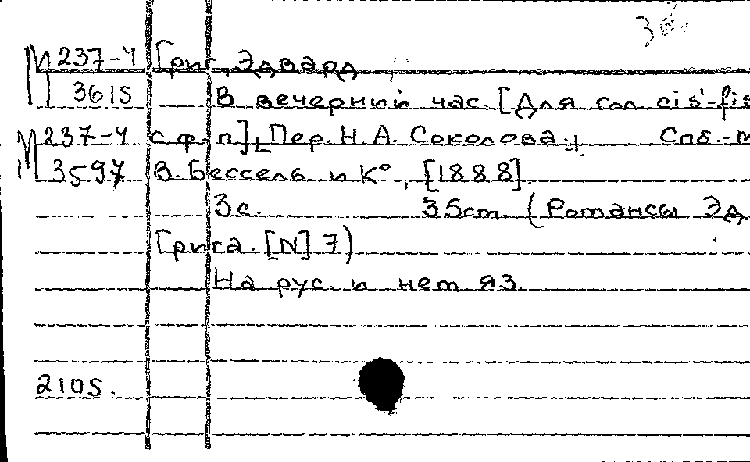 30.
М 237-4 Григ, Эдвард
3615 В вечерний час. [Для соп. cis'-fis
М 237-4 с ф-п]. Пер. Н. А. Соколова. Спб.-М
3597 В. Бессель и К°, [1888].
3 с. 35 см. (Романсы Эд
Грига. [N] 7)
На рус. и нем яз.
2105.